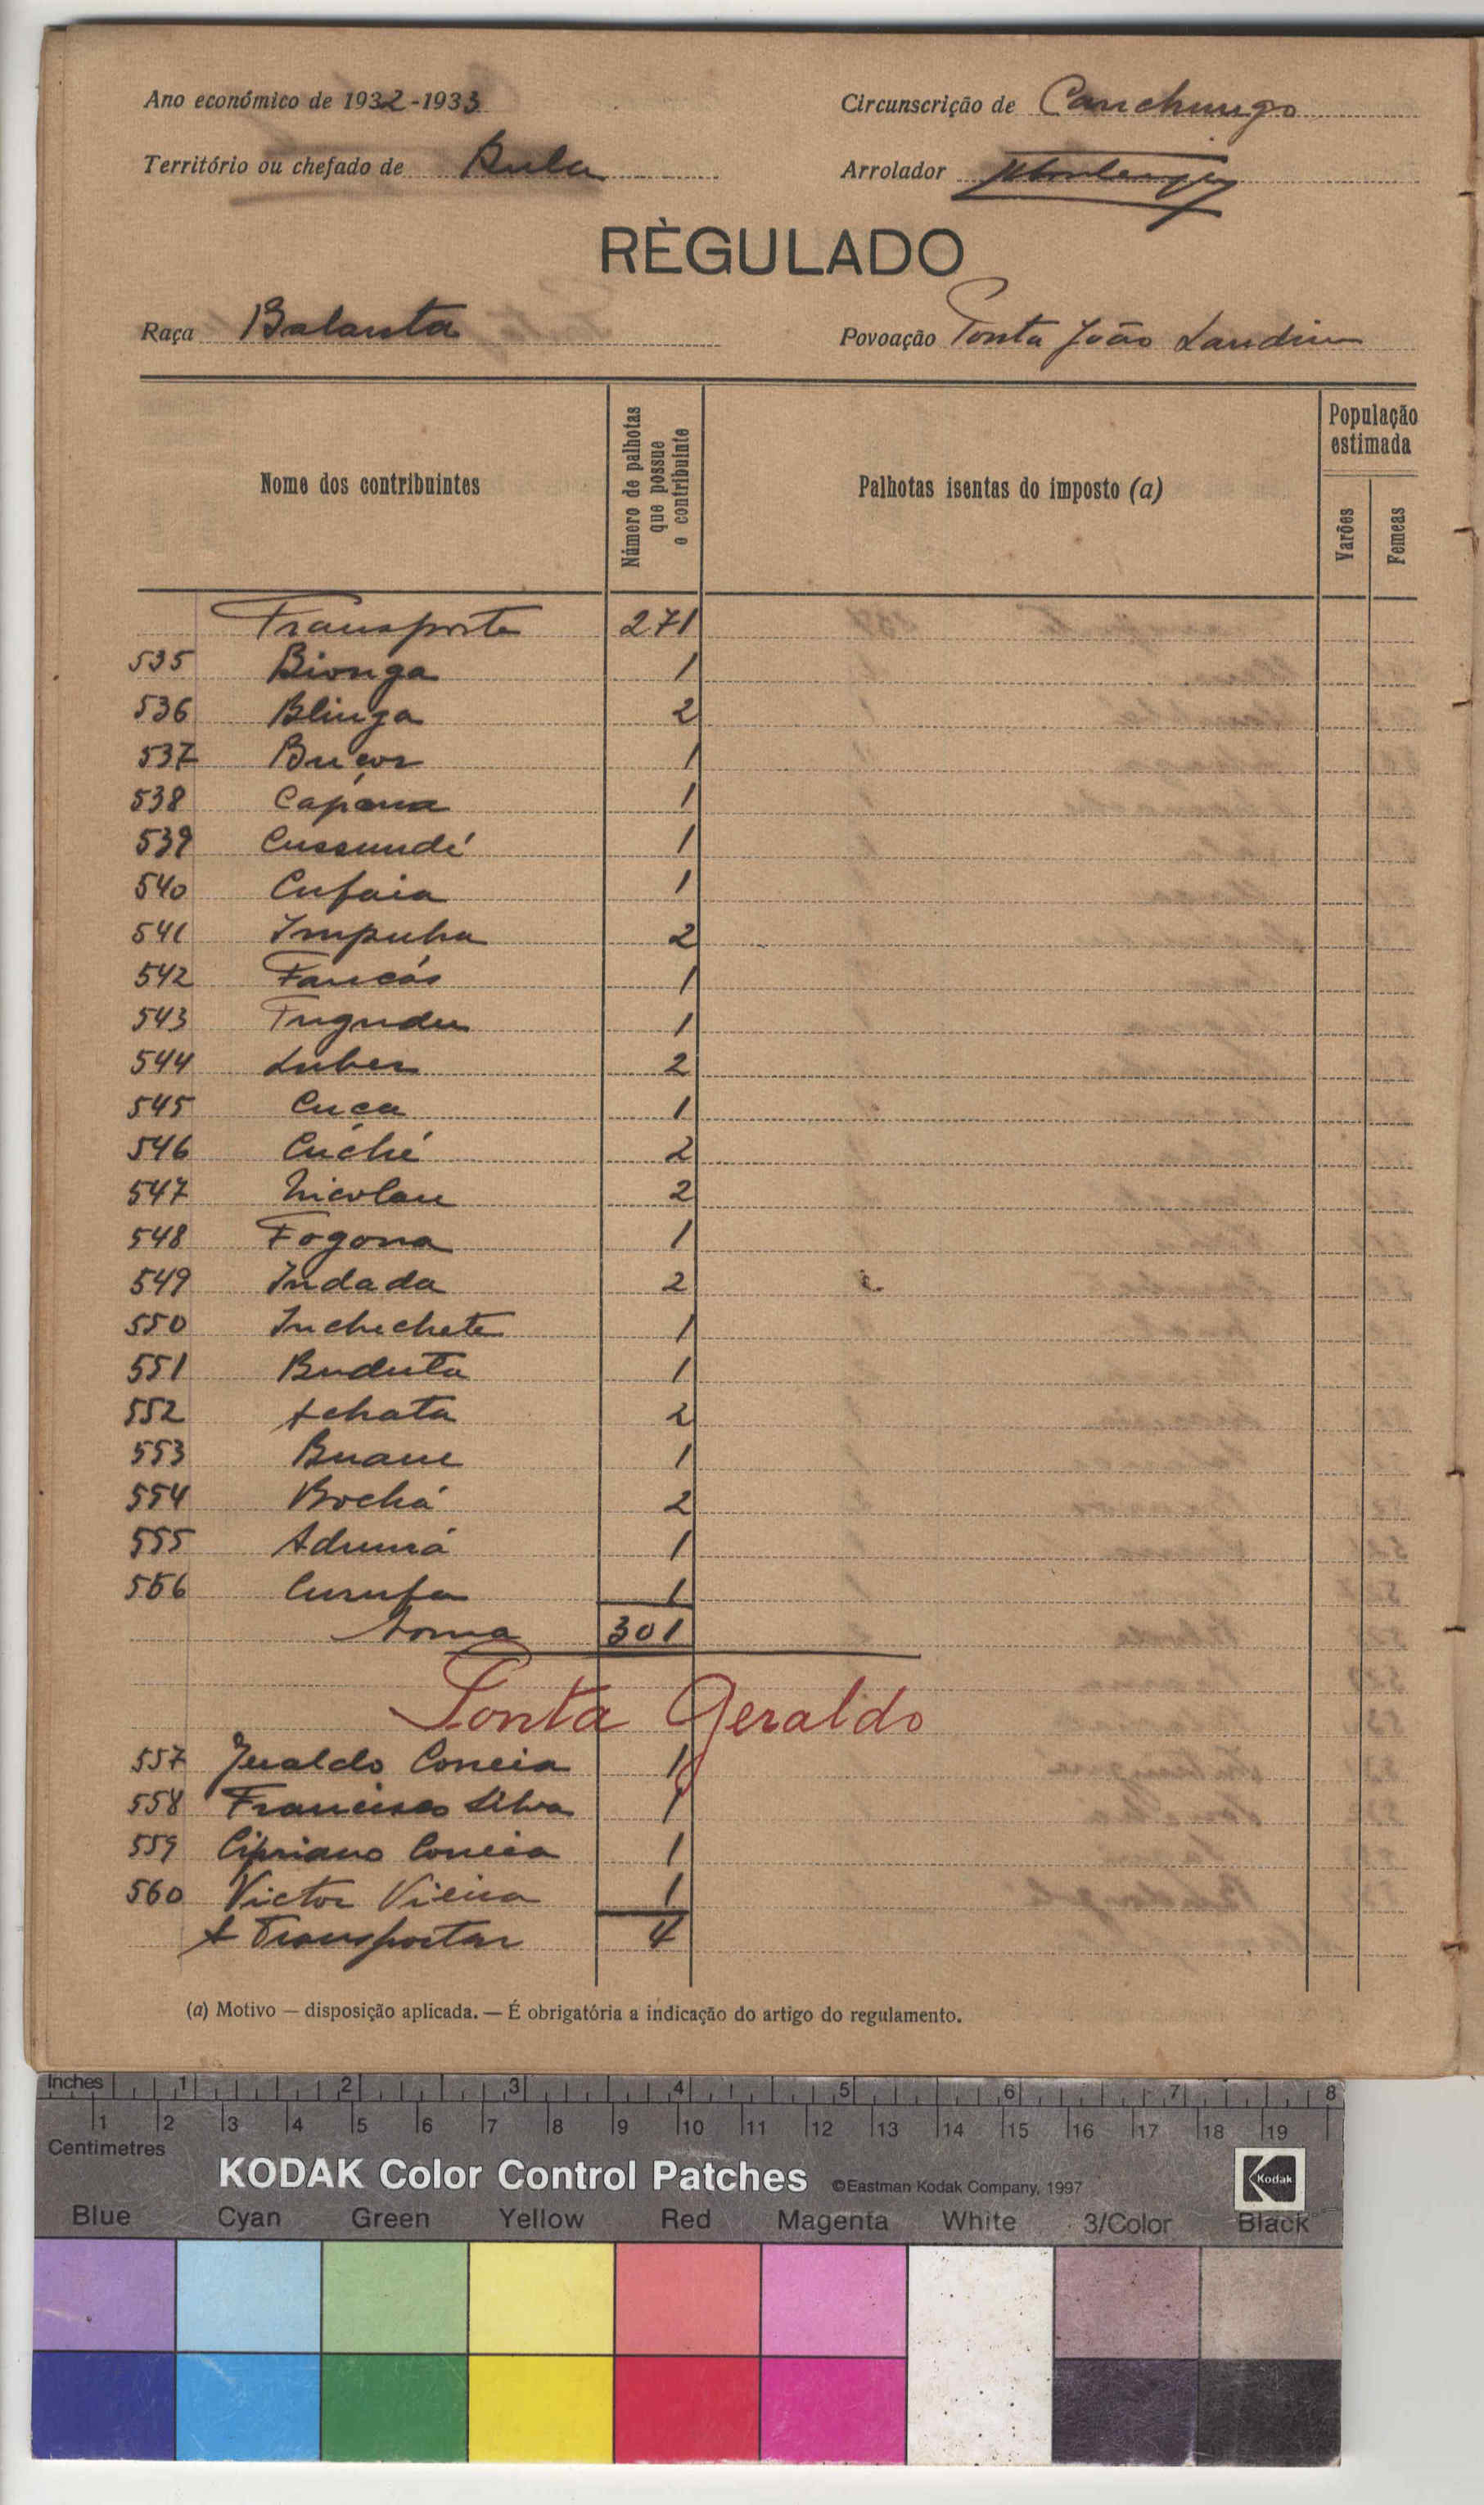 Ano económico de 1932-1933
Circunscrição de Canchungo
Território ou chefado de Bula
Arrolador
RÈGULADO
Raça Balanta
Povoação Ponta João Landim
Nome dos contribuintes
Número de palhotas que possue o contribuinte
Palhotas isentas do imposto (a)
População estimada
Varões
Femeas
Transporte 271
535 Bionga 1
536 Blinga 2
537 Buçor 1
538 Capana 1
539 Cussundé 1
540 Cufaia 1
541 Impuha 2
542 Fancás 1
543 Fugudu 1
544 Luber 2
545 Cuca 1
546 Cúché 2
547 Nicolau 2
548 Fogona 1
549 Indada 2
550 Inchechete 1
551 Buduta 1
552 Achata 2
553 Buane 1
554 Bochá 2
555 Adumá 1
556 Curufa 1
Soma 301
Ponta Geraldo
557 Jeraldo Correia 1
558 Francisco Silva 1
559 Cipriano Correia 1
560 Victor Vieira 1
A Transportar 4
(a) Motivo — disposição aplicada. — É obrigatória a indicação do artigo do regulamento.
Inches 1 2 3 4 5 6 7 8
Centimetres 1 2 3 4 5 6 7 8 9 10 11 12 13 14 15 16 17 18 19
KODAK Color Control Patches ©Eastman Kodak Company, 1997 Kodak
Blue Cyan Green Yellow Red Magenta White 3/Color Black